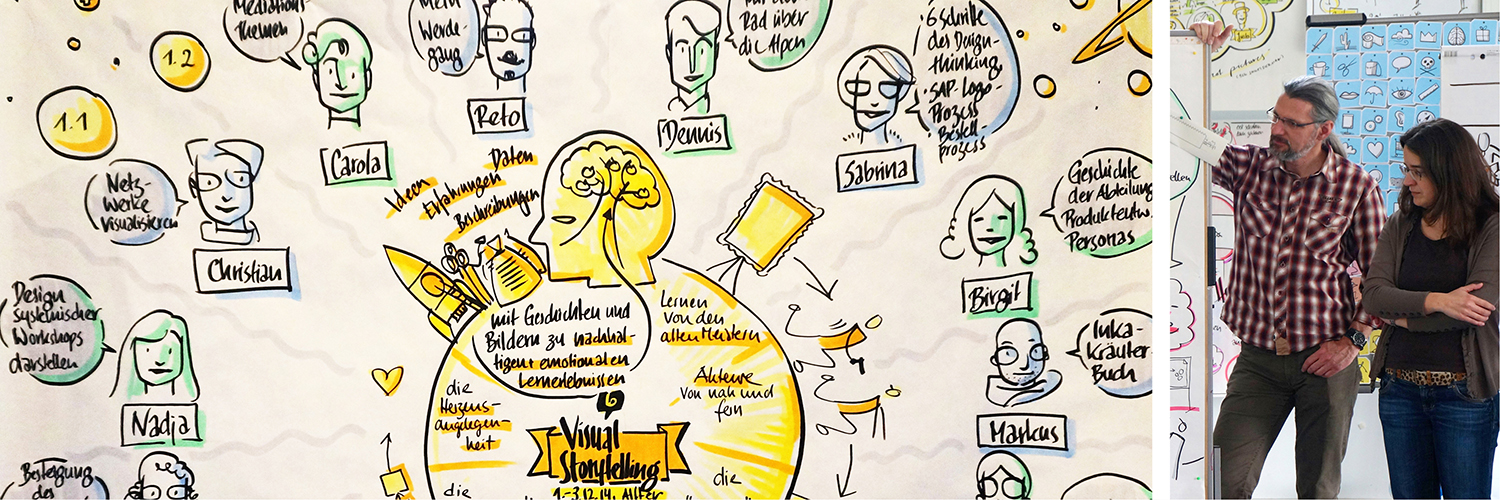 Mediations-
Themen
Carola
1.2
1.1
Mein
Werde-
gang
Reto
Dennis
Rad über
die Alpen
6 Schritte
des Design-
thinking
SAP-Logo-
Prozess
Bestell-
prozess
Sabrina
Netz-
werke
visualisieren
Christian
Geschichte
der Abteilung
Produktentw.
Personas
Birgit
Design
systemischer
Workshops
darstellen
Nadja
Inka-
Kräuter-
Buch
Markus
Besteigung
des
Ideen
Erfahrungen
Daten
Beschreibungen
mit Geschichten und
Bildern zu nachhal-
tigen + emotionalen
Lernerlebnissen
Lernen
von den
alten Meistern
die
Herzens-
angelegen-
heit
Akteure
von nah und
fern
Visual
Storytelling
1.-3.12.14, Alfter
die
die